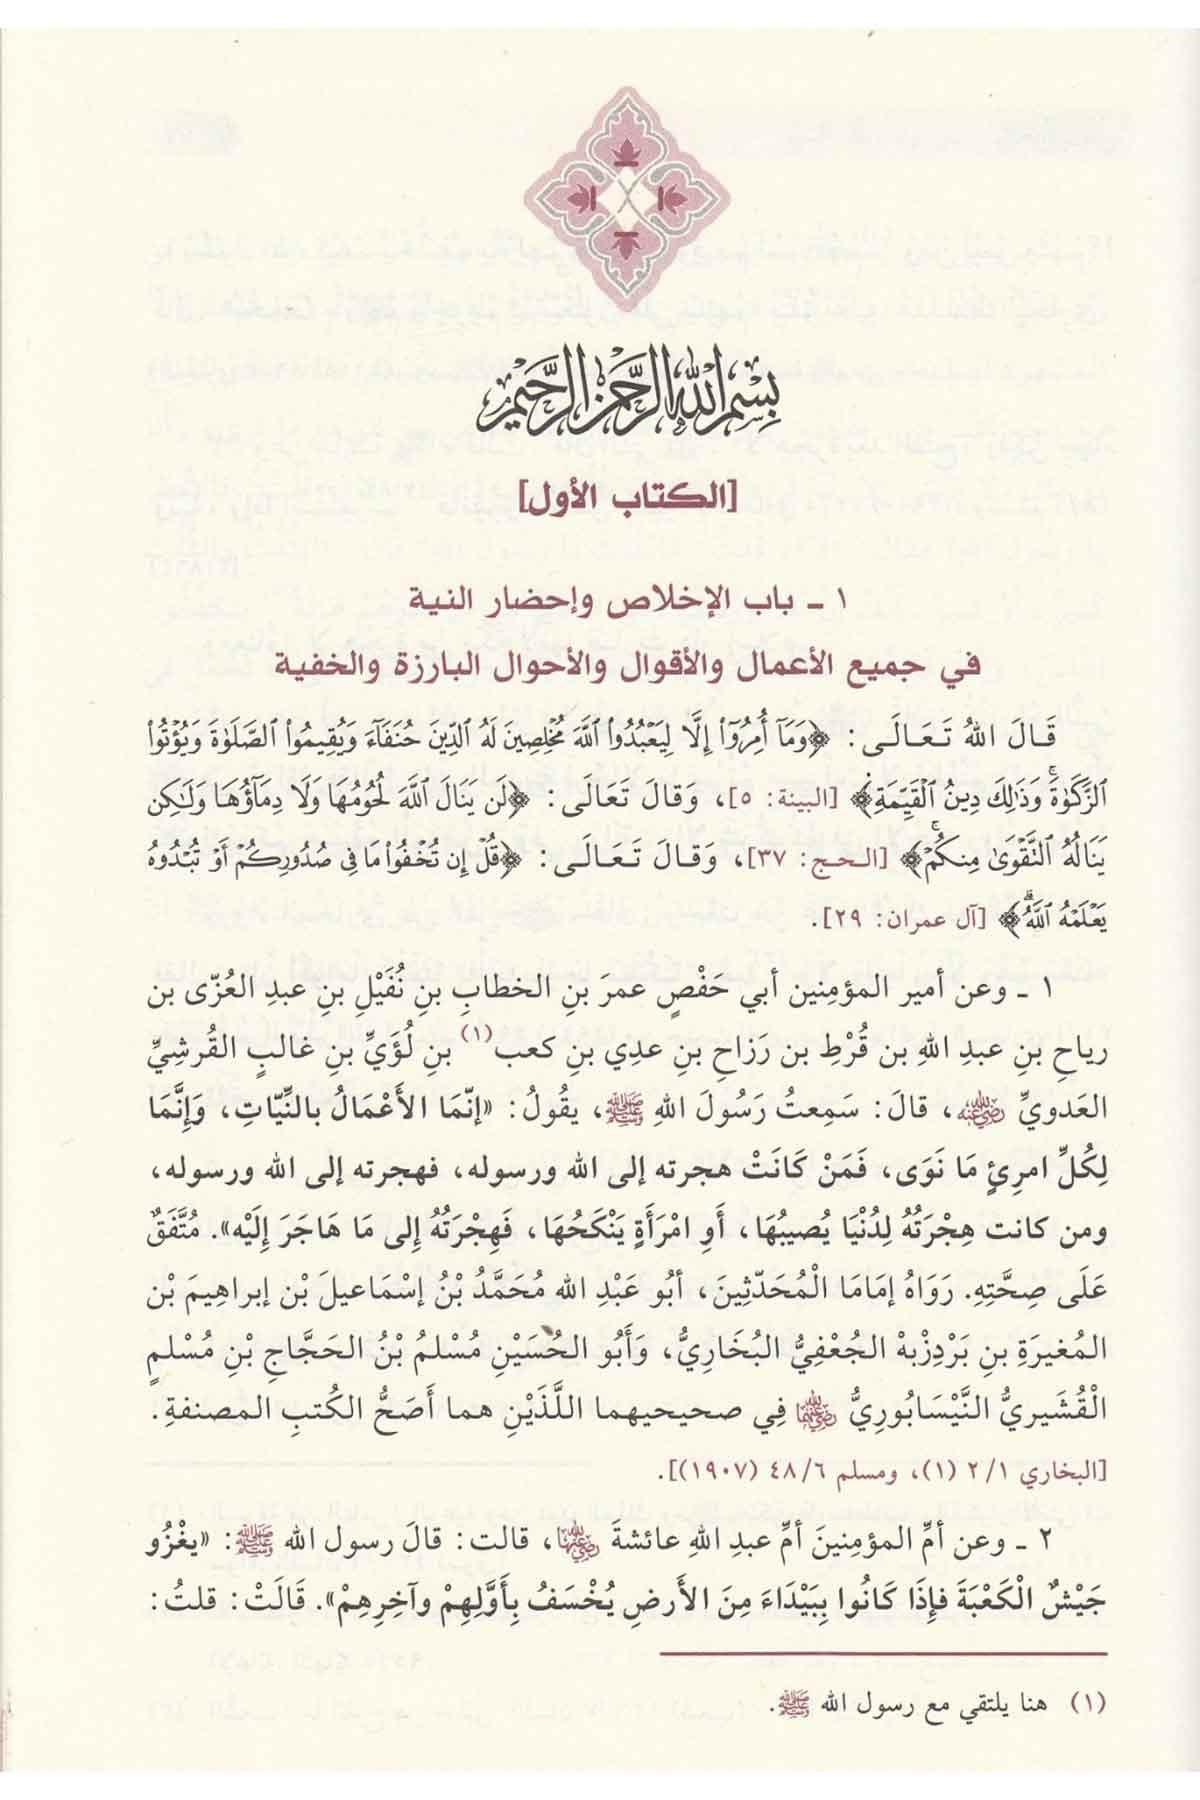 بِسْمِ اللهِ الرَّحْمٰنِ الرَّحِيمِ
[الكتاب الأول]
١ ـ باب الإخلاص وإحضار النية
في جميع الأعمال والأقوال والأحوال البارزة والخفية
قَالَ اللهُ تَعَالَى: ﴿وَمَآ أُمِرُوٓاْ إِلَّا لِيَعۡبُدُواْ ٱللَّهَ مُخۡلِصِينَ لَهُ ٱلدِّينَ حُنَفَآءَ وَيُقِيمُواْ ٱلصَّلَوٰةَ وَيُؤۡتُواْ
ٱلزَّكَوٰةَۚ وَذَٰلِكَ دِينُ ٱلۡقَيِّمَةِ﴾ [البينة: ٥]، وَقَالَ تَعَالَى: ﴿لَن يَنَالَ ٱللَّهَ لُحُومُهَا وَلَا دِمَآؤُهَا وَلَٰكِن
يَنَالُهُ ٱلتَّقۡوَىٰ مِنكُمۡۚ﴾ [الحج: ٣٧]، وَقَالَ تَعَالَى: ﴿قُلۡ إِن تُخۡفُواْ مَا فِي صُدُورِكُمۡ أَوۡ تُبۡدُوهُ
يَعۡلَمۡهُ ٱللَّهُۗ﴾ [آل عمران: ٢٩].
١ ـ وعن أمير المؤمِنين أبي حَفْصٍ عمرَ بنِ الخطابِ بنِ نُفَيْلِ بنِ عبدِ العُزّى بن
رياحِ بنِ عبدِ اللهِ بن قُرْطِ بن رَزاحِ بنِ عدِي بنِ كعب(١) بنِ لُؤَيِّ بنِ غالبٍ القُرشِيِّ
العَدويِّ رضي الله عنه، قالَ: سَمِعتُ رَسُولَ اللهِ ﷺ، يقُولُ: «إنّمَا الأَعْمَالُ بالنِّيّاتِ، وَإِنَّمَا
لِكُلِّ امرِئٍ مَا نَوَى، فَمَنْ كَانَتْ هجرته إلى الله ورسوله، فهجرته إلى الله ورسوله،
ومن كانت هِجْرَتُهُ لِدُنْيَا يُصيبُهَا، أَوِ امْرَأَةٍ يَنْكَحُهَا، فَهِجْرَتُهُ إلى مَا هَاجَرَ إِلَيْه». مُتَّفَقٌ
عَلَى صِحَّتِهِ. رَوَاهُ إمَامَا الْمُحَدّثِينَ، أبُو عَبْدِ الله مُحَمَّدُ بْنُ إسْمَاعيلَ بْن إبراهِيمَ بْن
المُغيرَةِ بنِ بَرْدِزْبهْ الجُعْفِيُّ البُخَارِيُّ، وَأَبُو الحُسَيْنِ مُسْلمُ بْنُ الحَجَّاجِ بْنِ مُسْلمٍ
الْقُشَيريُّ النَّيْسَابُورِيُّ رضي الله عنهما فِي صحيحيهما اللَّذَيْنِ هما أَصَحُّ الكُتبِ المصنفةِ.
[البخاري ٢/١ (١)، ومسلم ٤٨/٦ (١٩٠٧)].
٢ ـ وعن أمِّ المؤمِنينَ أمِّ عبدِ اللهِ عائشةَ رضي الله عنها، قالت: قالَ رسول الله ﷺ: «يغْزُو
جَيْشٌ الْكَعْبَةَ فإِذَا كَانُوا بِبَيْدَاءَ مِنَ الأَرضِ يُخْسَفُ بِأَوَّلِهِمْ وآخِرِهِمْ». قَالَتْ: قلتُ:
(١) هنا يلتقي مع رسول الله ﷺ.